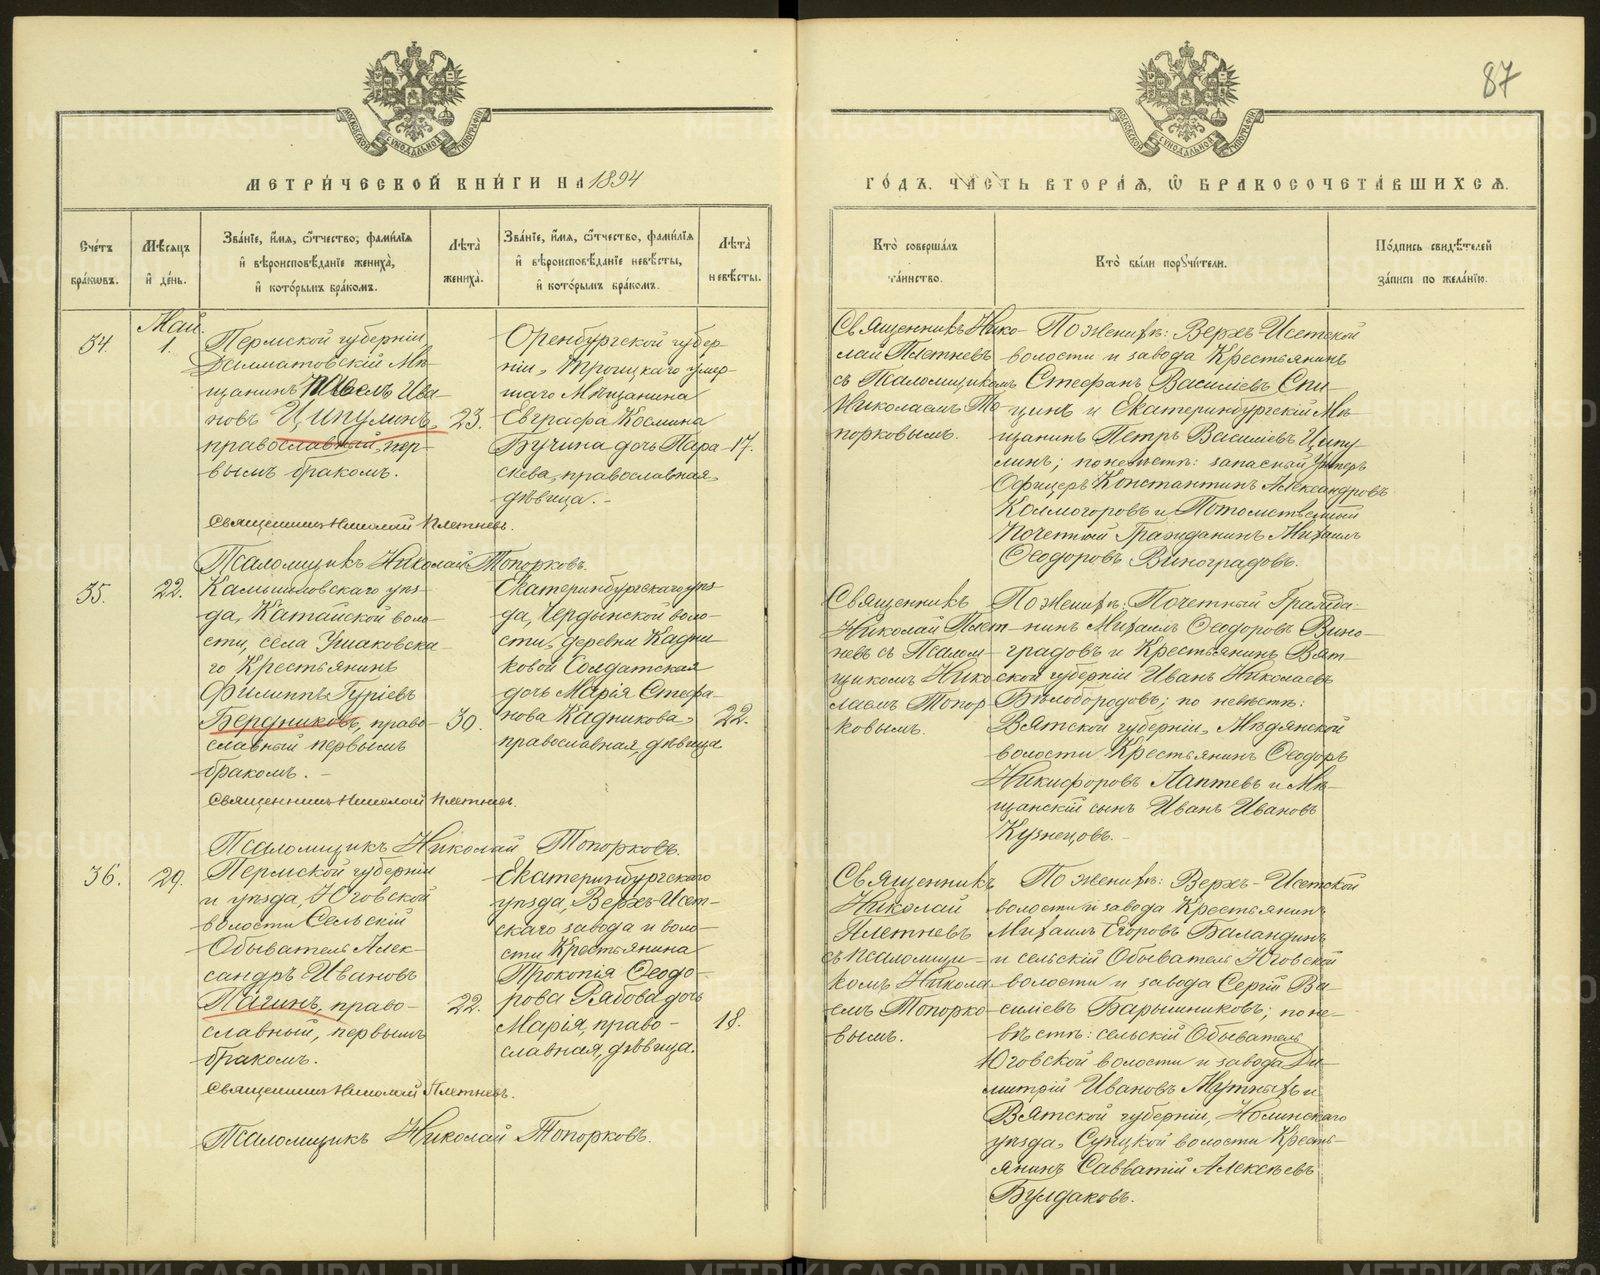 87
МОСКОВСКОЙ СѴНОДАЛЬНОЙ ТИПОГРАФІИ
МОСКОВСКОЙ СѴНОДАЛЬНОЙ ТИПОГРАФІИ
МЕТРИ́ЧЕСКОЙ КНИ́ГИ НА 1894
ГО́ДЪ. ЧА́СТЬ ВТОРА́Ѧ, Ѽ БРАКОСОЧЕТА́ВШИХСѦ.
Счетъ бра́кѡвъ.
Мѣ́сяцъ и҆ де́нь.
Зва́нїе, и҆́мѧ, ѻ҆́тчество, фами́лїѧ
и҆ вѣроисповѣ́данїе жениха̀,
и҆ кото́рымъ бра́комъ.
Лѣта̀ жениха̀.
Зва́нїе, и҆́мѧ, ѻ҆́тчество, фами́лїѧ
и҆ вѣроисповѣ́данїе невѣ́сты,
и҆ кото́рымъ бра́комъ.
Лѣта̀ невѣ́сты.
Кто̀ соверша́лъ та́инство.
Кто̀ бы́ли порꙋчи́тели.
По́дпись свидѣ́телей за́писи по жела́нїю.
Май
34.
1.
Пермской губерніи,
Далматовскій Мѣ-
щанинъ Павелъ Ива-
новъ Ципулинъ,
православный, пер-
вымъ бракомъ.
23.
Оренбургской губер-
ніи, Троицкаго умер-
шаго Мѣщанина
Евграфа Космина
Бучина дочь Пара-
скева, православная,
дѣвица.-
17.
Священникъ Нико-
лай Плетневъ
съ Псаломщикомъ
Николаемъ То-
порковымъ.
По женихѣ: Верхъ-Исетской
волости и завода Крестьянинъ
Стефанъ Василіевъ Спи-
цинъ и Екатеринбургскій Мѣ-
щанинъ Петръ Василіевъ Ципу-
линъ; по невѣстѣ: запасный Унтеръ
Офицеръ Константинъ Александровъ
Колмогоровъ и Потомственный
Почетный Гражданинъ Михаилъ
Ѳеодоровъ Виноградовъ.
Священникъ Николай Плетневъ.
Псаломщикъ Николай Топорковъ.
35.
22.
Камышловскаго уѣз-
да, Катайской воло-
сти, села Ушаковска-
го Крестьянинъ
Филиппъ Гуріевъ
Бердниковъ, право-
славный первымъ
бракомъ. -
30.
Екатеринбургскаго уѣз-
да,
сти, деревни Кадни-
ковой Солдатская
дочь Марія Стефа-
нова Кадникова,
православная, дѣвица
22.
Священникъ
Николай Плет-
невъ съ Псалом-
щикомъ Нико-
лаемъ Топор-
ковымъ.
По женихѣ: Почетный Гражда-
нинъ Михаилъ Ѳеодоровъ Вино-
градовъ и Крестьянинъ Вят-
ской губерніи Иванъ Николаевъ
Бѣлобородовъ; по невѣстѣ:
Вятской губерніи, Мѣдянской
волости Крестьянинъ Ѳеодоръ
Никифоровъ Лаптевъ и Мѣ-
щанскій сынъ Иванъ Ивановъ
Кузнецовъ.-
Священникъ Николай Плетневъ.
Псаломщикъ Николай Топорковъ.
36.
29.
Пермской губерніи
и уѣзда, Юговской
волости Сельскій
Обыватель Алек-
сандръ Ивановъ
Пагинъ, право-
славный, первымъ
бракомъ.
22.
Екатеринбургскаго
уѣзда, Верхъ-Исет-
скаго завода и воло-
сти Крестьянина
Прокопія Ѳеодо-
рова Рябова дочь
Марія, право-
славная, дѣвица.
18.
Священникъ
Николай
Плетневъ
съ Псаломщи-
комъ Никола-
емъ Топорко-
вымъ.
По женихѣ: Верхъ-Исетской
волости и завода Крестьянинъ
Михаилъ Егоровъ Баландинъ
и сельскій Обыватель Юговской
волости и завода Сергій Ва-
силіевъ Барышниковъ; по не-
вѣстѣ: сельскій Обыватель
Юговской волости и завода Ди-
митрій Ивановъ Мутныхъ и
Вятской губерніи, Нолинскаго
уѣзда, волости Кресть-
янинъ Савватій Алексѣевъ
Булдаковъ.
Священникъ Николай Плетневъ.
Псаломщикъ Николай Топорковъ.